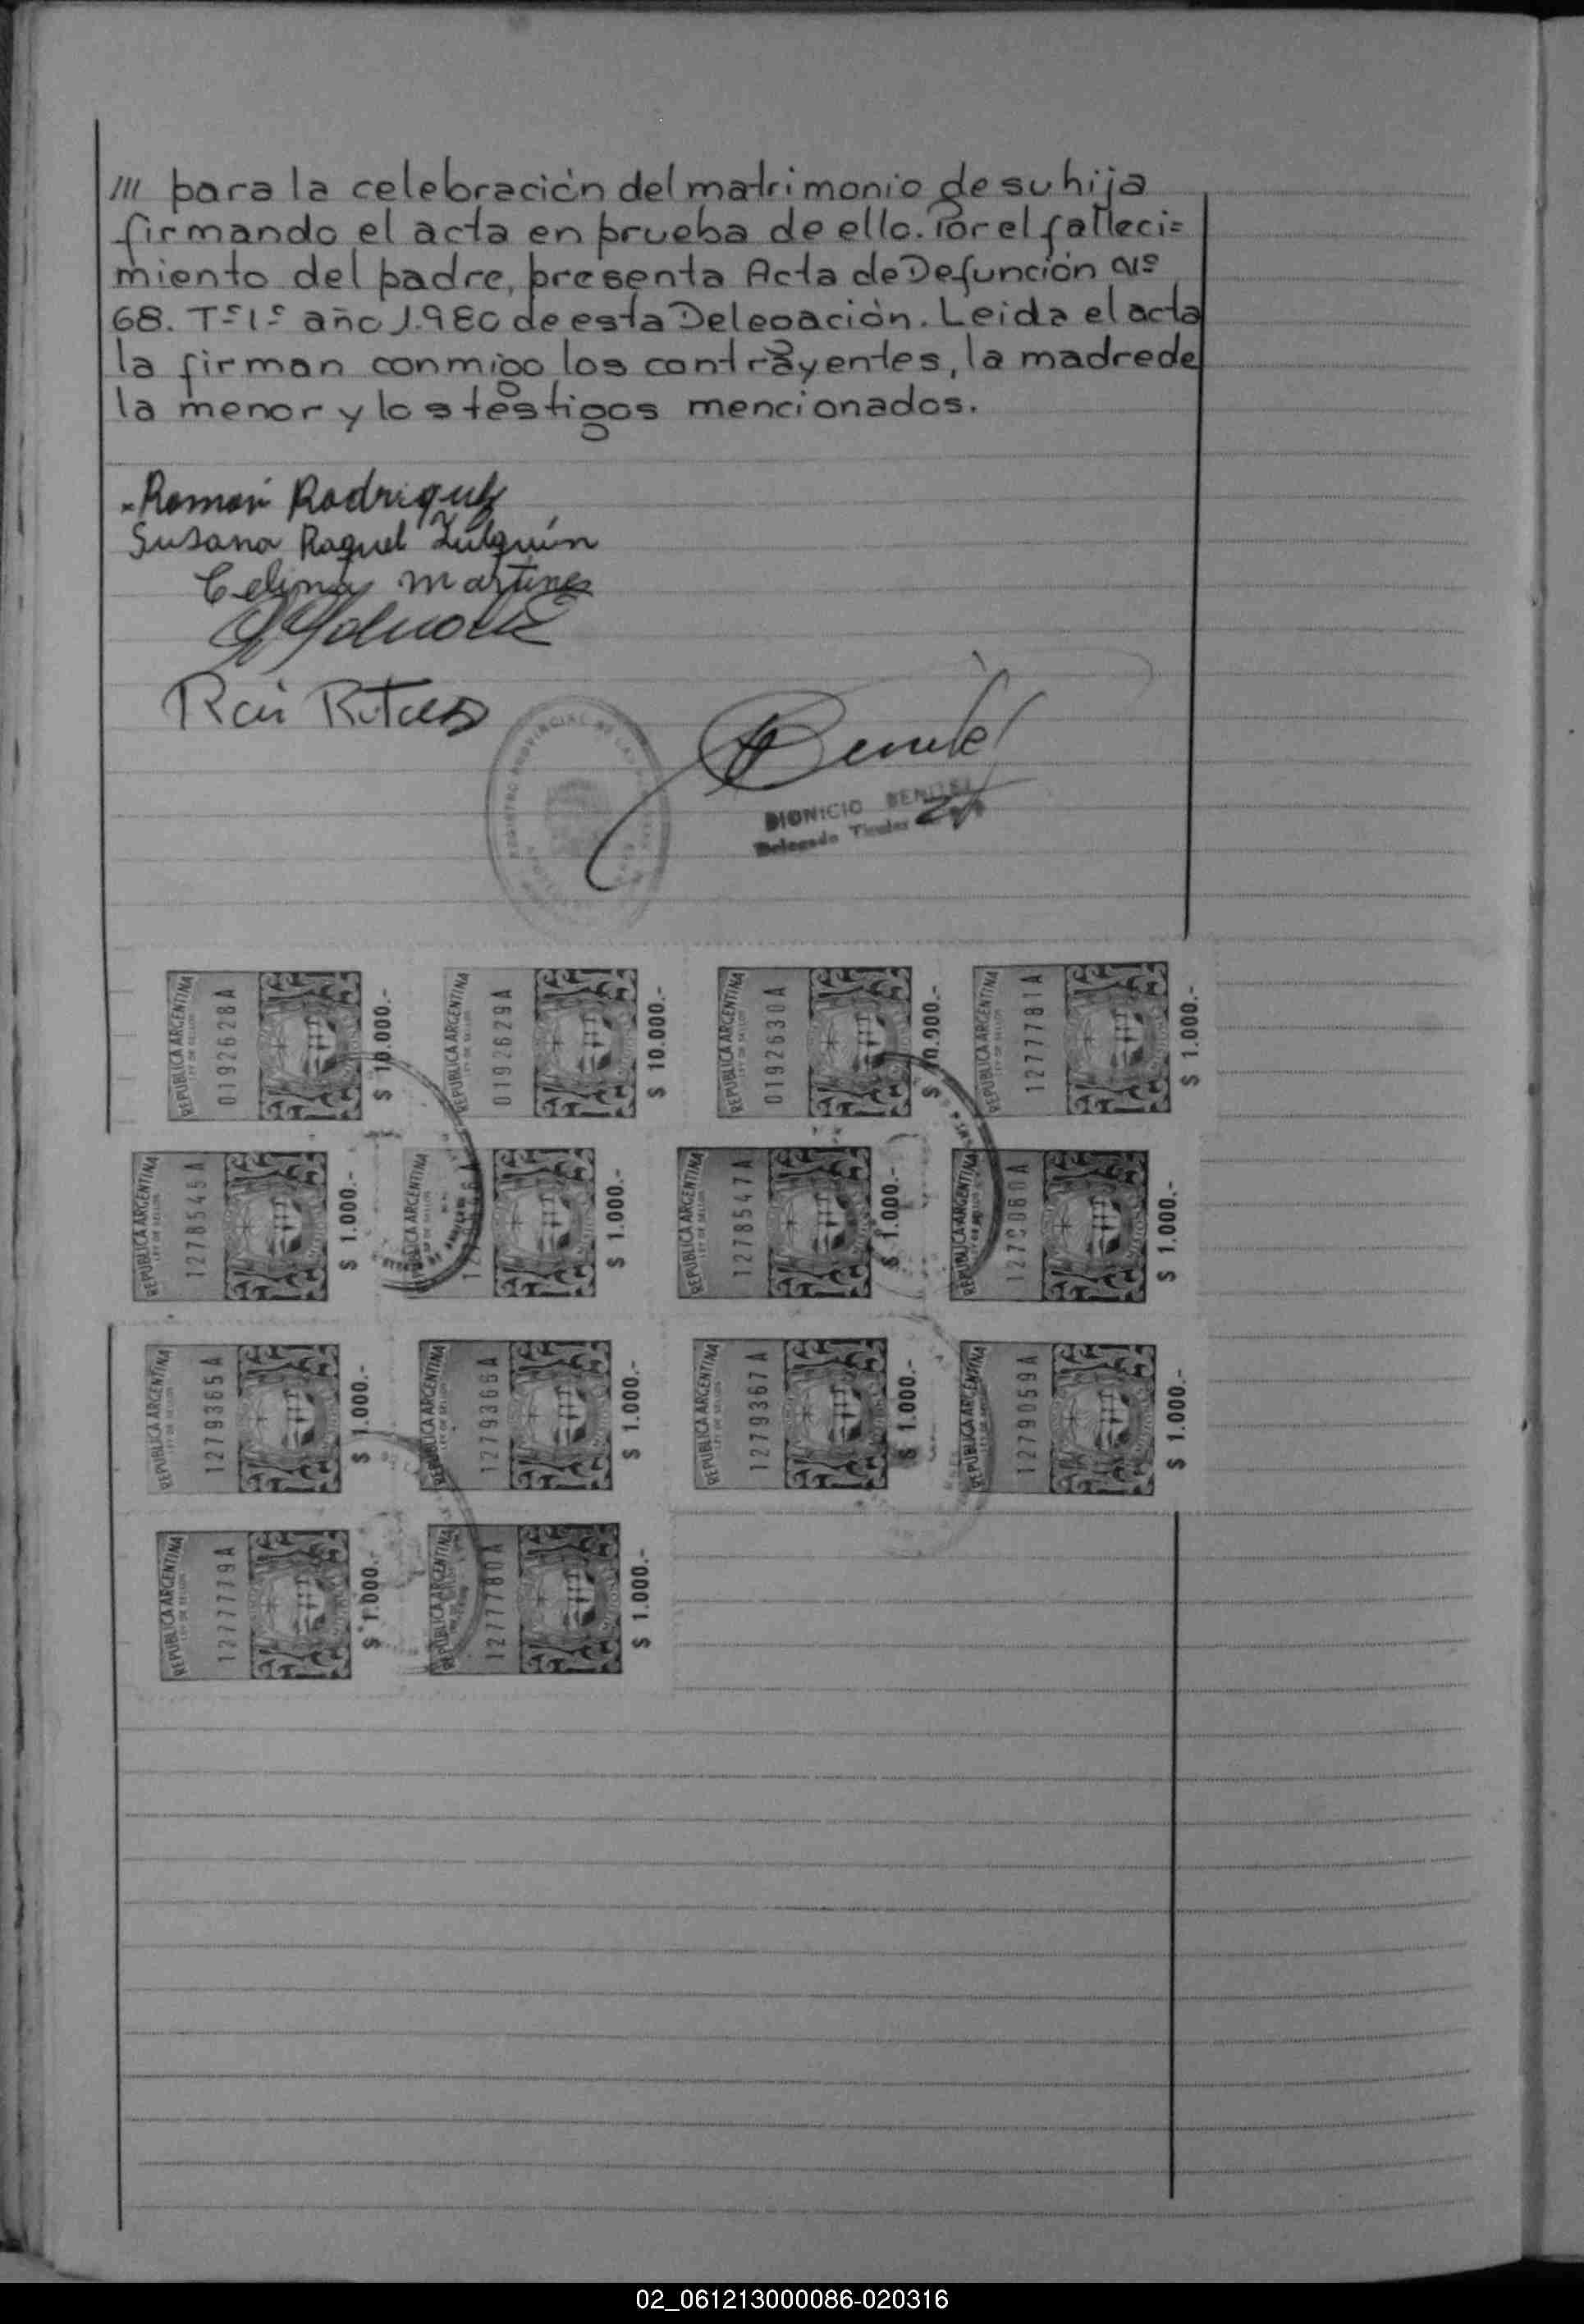 /// para la celebración del matrimonio de su hija
firmando el acta en prueba de ello. Por el falleci=
miento del padre, presenta Acta de Defunción Nº
68. Tº 1º año 1.980 de esta Delegación. Leida el acta
la firman conmigo los contrayentes, la madre de
la menor y los testigos mencionados.
Ramón Rodriguez
Susana Raquel
Celina Martines
DIONICIO BENITEZ
Delegado Titular
REPUBLICA ARGENTINA
LEY DE SELLOS
01926628A
$ 10.000.-
REPUBLICA ARGENTINA
LEY DE SELLOS
01926629A
$ 10.000.-
REPUBLICA ARGENTINA
LEY DE SELLOS
01926630A
$ 10.000.-
REPUBLICA ARGENTINA
LEY DE SELLOS
12777781A
$ 1.000.-
REPUBLICA ARGENTINA
LEY DE SELLOS
1278545A
$ 1.000.-
REPUBLICA ARGENTINA
LEY DE SELLOS
$ 1.000.-
REPUBLICA ARGENTINA
LEY DE SELLOS
1278547A
$ 1.000.-
REPUBLICA ARGENTINA
$ 1.000.-
REPUBLICA ARGENTINA
LEY DE SELLOS
1279365A
$ 1.000.-
REPUBLICA ARGENTINA
LEY DE SELLOS
1279366A
$ 1.000.-
REPUBLICA ARGENTINA
LEY DE SELLOS
1279367A
$ 1.000.-
REPUBLICA ARGENTINA
LEY DE SELLOS
1279059A
$ 1.000.-
REPUBLICA ARGENTINA
LEY DE SELLOS
1277779A
$ 1.000.-
REPUBLICA ARGENTINA
1277780A
$ 1.000.-
02_061213000086-020316